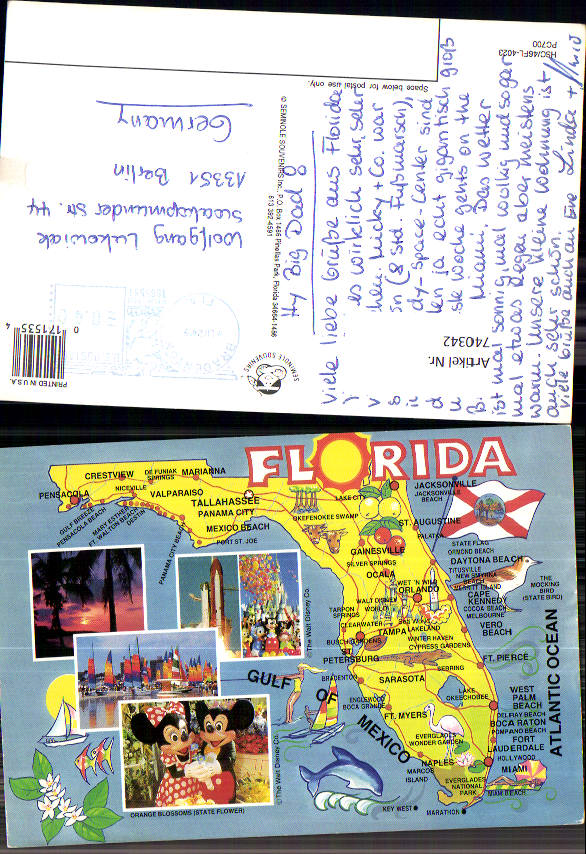 HSC/46FL-4023
PC700
Space below for postal use only.
© SEMINOLE SOUVENIRS Inc., P.O. Box 1466 Pinellas Park, Florida 34664-1466
813 392-4591
SEMINOLE SOUVENIRS
Hy Big Dad
Viele liebe Grüße aus Florida
es wirklich sehr, sehr
Micky + Co. war
(8 Std. Fußmarsch),
dy-space-Center sind
ja echt gigantisch groß
ste Woche gehts on the
Miami. Das Wetter
ist mal sonnig, mal wolkig und sogar
mal etwas Regen aber meistens
warm. Unsere kleine Wohnung ist
auch sehr schön.
viele Grüße auch an Linda +
Artikel Nr.
740342
Wolfgang Lukowiak
Str. 44
13351 Berlin
Germany
PRINTED IN U.S.A.
0 171535 4
FLORIDA
PENSACOLA
CRESTVIEW
DE FUNIAK SPRINGS
MARIANNA
NICEVILLE
VALPARAISO
GULF BREEZE
PENSACOLA BEACH
MARY ESTHER
FT. WALTON BEACH
DESTIN
PANAMA CITY BEACH
TALLAHASSEE
PANAMA CITY
MEXICO BEACH
PORT ST. JOE
LAKE CITY
OKEFENOKEE SWAMP
JACKSONVILLE
JACKSONVILLE BEACH
ST. AUGUSTINE
PALATKA
STATE FLAG
GAINESVILLE
SILVER SPRINGS
OCALA
ORMOND BEACH
DAYTONA BEACH
TITUSVILLE
NEW SMYRNA BEACH
MERRITT ISLAND
CAPE KENNEDY
COCOA BEACH
MELBOURNE
THE MOCKING BIRD (STATE BIRD)
WET 'N WILD
ORLANDO
WALT DISNEY WORLD
TARPON SPRINGS
CLEARWATER
SEA WORLD
BUSCH GARDENS
TAMPA
LAKELAND
WINTER HAVEN
CYPRESS GARDENS
VERO BEACH
ST. PETERSBURG
SEBRING
FT. PIERCE
BRADENTON
SARASOTA
LAKE OKEECHOBEE
ENGLEWOOD
BOCA GRANDE
FT. MYERS
WEST PALM BEACH
DELRAY BEACH
BOCA RATON
POMPANO BEACH
FORT LAUDERDALE
HOLLYWOOD
EVERGLADES WONDER GARDEN
NAPLES
MARCOS ISLAND
MIAMI
MIAMI BEACH
EVERGLADES NATIONAL PARK
KEY WEST
MARATHON
GULF OF MEXICO
ATLANTIC OCEAN
©The Walt Disney Co.
©The Walt Disney Co.
ORANGE BLOSSOMS (STATE FLOWER)